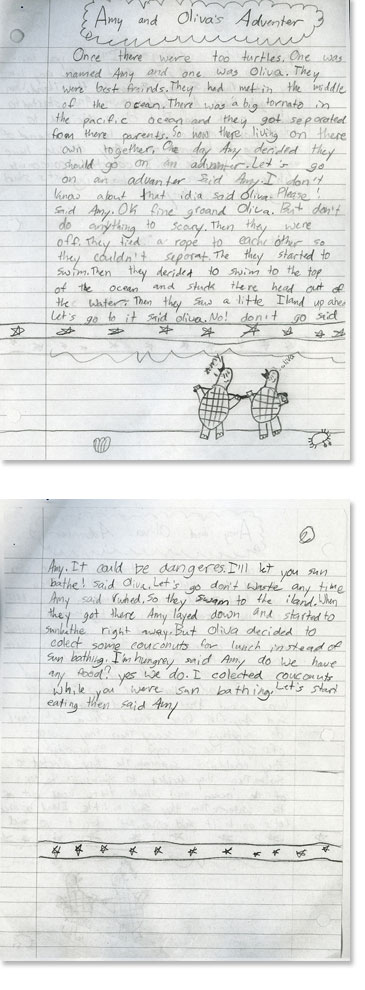 Amy and Oliva's Adventer
Once there were too turtles. One was
named Amy and one was Oliva. They
were best frinds. They had met in the middle
of the ocean. There was a big tornato in
the pacific ocean and they got seperated
from there parents. So now there living on there
own together. One day Amy decided they
should go on an advanter. Let's go
on an advanter said Amy. I don't
know about that idia said Oliva. Please!
said Amy. OK fine groand Oliva. But don't
do anything to scary. Then they were
off. They tied a rope to eachc other so
they couldn't seperat. The they started to
swim. Then they decided to swim to the top
of the ocean and stuck there head out of
the water. Then they saw a little Iland up ahea
Let's go to it said oliva. No! don't go said
Amy
Oliva
2
Amy. It could be dangeres. I'll let you sun
bathe! said Oliva. Let's go don't waste any time
Amy said rushed. So they swam to the iland. When
they got there Amy layed down and started to
sunbathe right away. But Oliva decided to
colect some couconuts for lunch instead of
sun bathing. I'm hungrey said Amy do we have
any food? yes we do. I colected couconuts
while you were sun bathing. Let's start
eating then said Amy